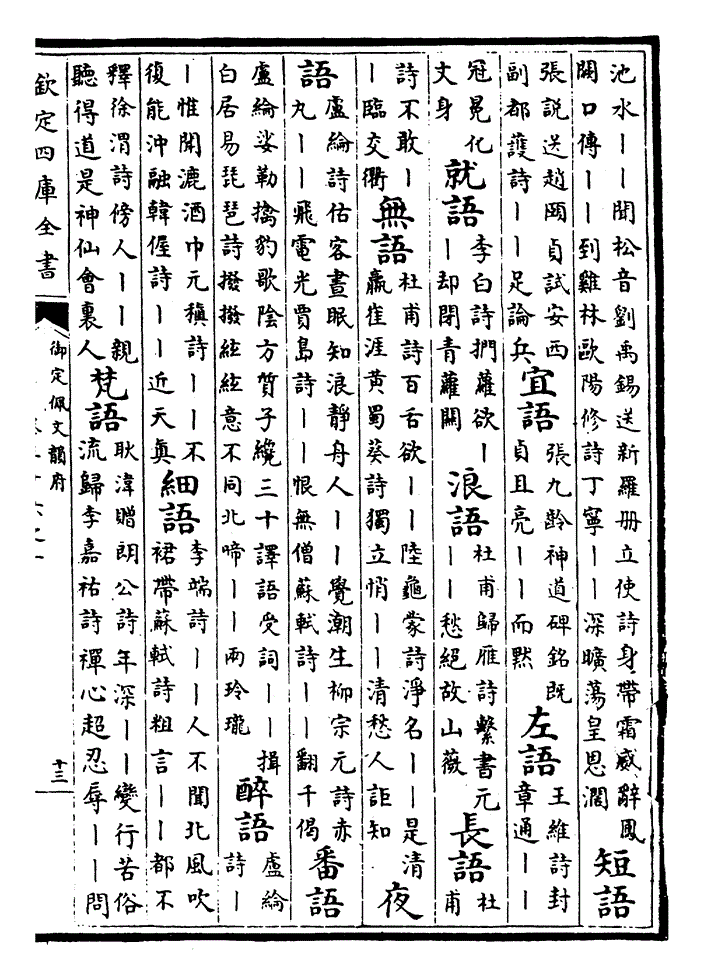 池水丨丨聞松音劉禹錫送新羅册立使詩身帶霜威辭鳳
闕口傳丨丨到雞林歐陽修詩丁寧丨丨深曠蕩皇恩濶
短語
張説送趙頤貞試安西
副都護詩丨丨足論兵
宜語
張九齡神道碑銘既
貞且亮丨丨而黙
左語
王維詩封
章通丨丨
冠冕化
文身
就語
李白詩捫蘿欲丨
丨却閉青蘿關
浪語
杜甫歸雁詩繫書元
丨丨愁絶故山薇
長語
杜
甫
詩不敢丨
丨臨交衢
無語
杜甫詩百舌欲丨丨陸龜蒙詩淨名丨丨是清
羸崔涯黃蜀葵詩獨立悄丨丨清愁人詎知
夜
語
盧綸詩估客晝眠知浪靜舟人丨丨覺潮生柳宗元詩赤
丸丨丨飛電光賈島詩丨丨恨無僧蘇軾詩丨丨翻千偈
番語
盧綸娑勒擒豹歌陰方質子纔三十譯語受詞丨丨揖
白居易琵琶詩撥撥絃絃意不同北啼丨丨兩玲瓏
醉語
盧綸
詩丨
丨惟聞漉酒巾元稹詩丨丨不
復能沖融韓偓詩丨丨近天真
細語
李端詩丨丨人不聞北風吹
裙帶蘇軾詩粗言丨丨都不
釋徐渭詩傍人丨丨親
聽得道是神仙會裏人
梵語
耿湋贈朗公詩年深丨丨變行苦俗
流歸李嘉祐詩禪心超忍辱丨丨問
欽定四庫全書
御定佩文韻府
十三